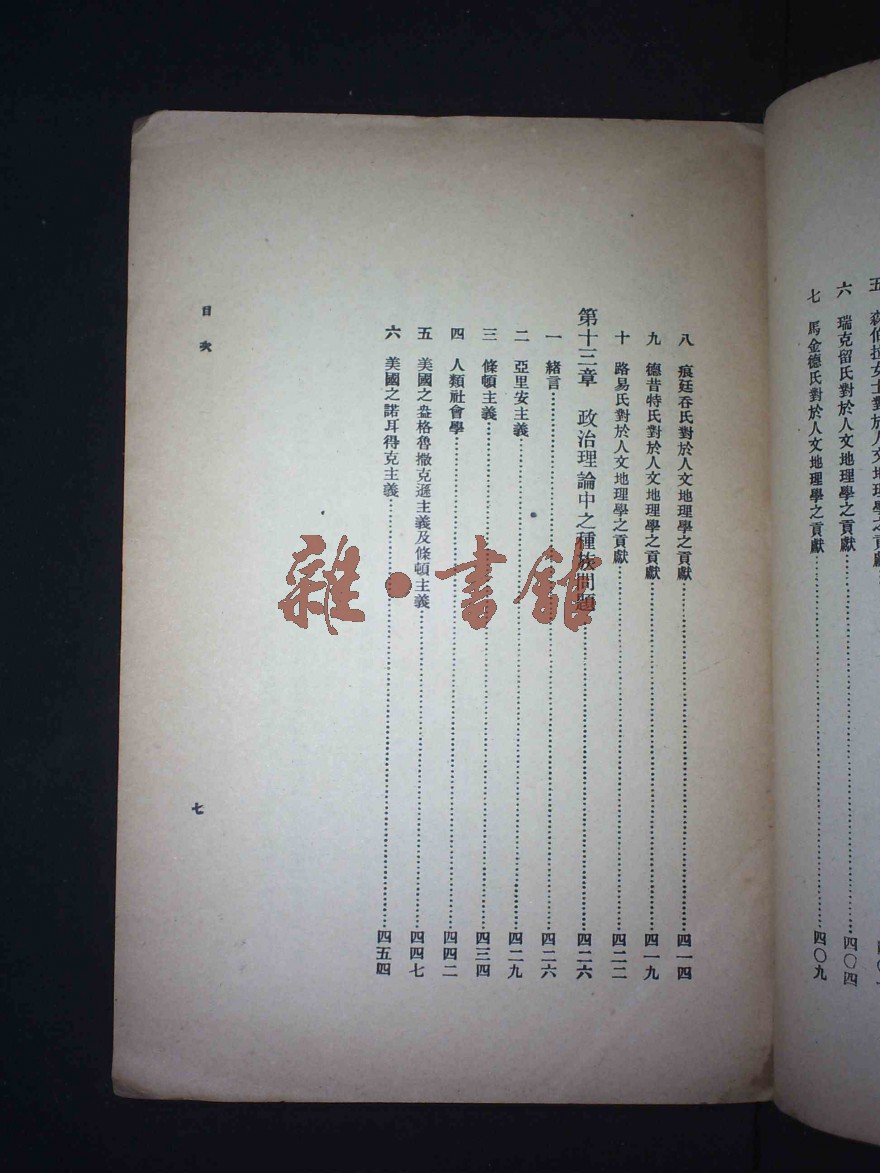 森伯拉女士對於人文地理學之貢獻
六　瑞克留氏對於人文地理學之貢獻……四〇四
七　馬金德氏對於人文地理學之貢獻……四〇九
八　痕廷吞氏對於人文地理學之貢獻……四一四
九　德昔特氏對於人文地理學之貢獻……四一九
十　路易氏對於人文地理學之貢獻……四二二
第十三章　政治理論中之種族問題……四二六
一　緒言……四二六
二　亞里安主義……四二九
三　條頓主義……四三四
四　人類社會學……四四二
五　美國之盎格魯撒克遜主義及條頓主義……四四七
六　美國之諾耳得克主義……四五四
目次
七
雜·書館